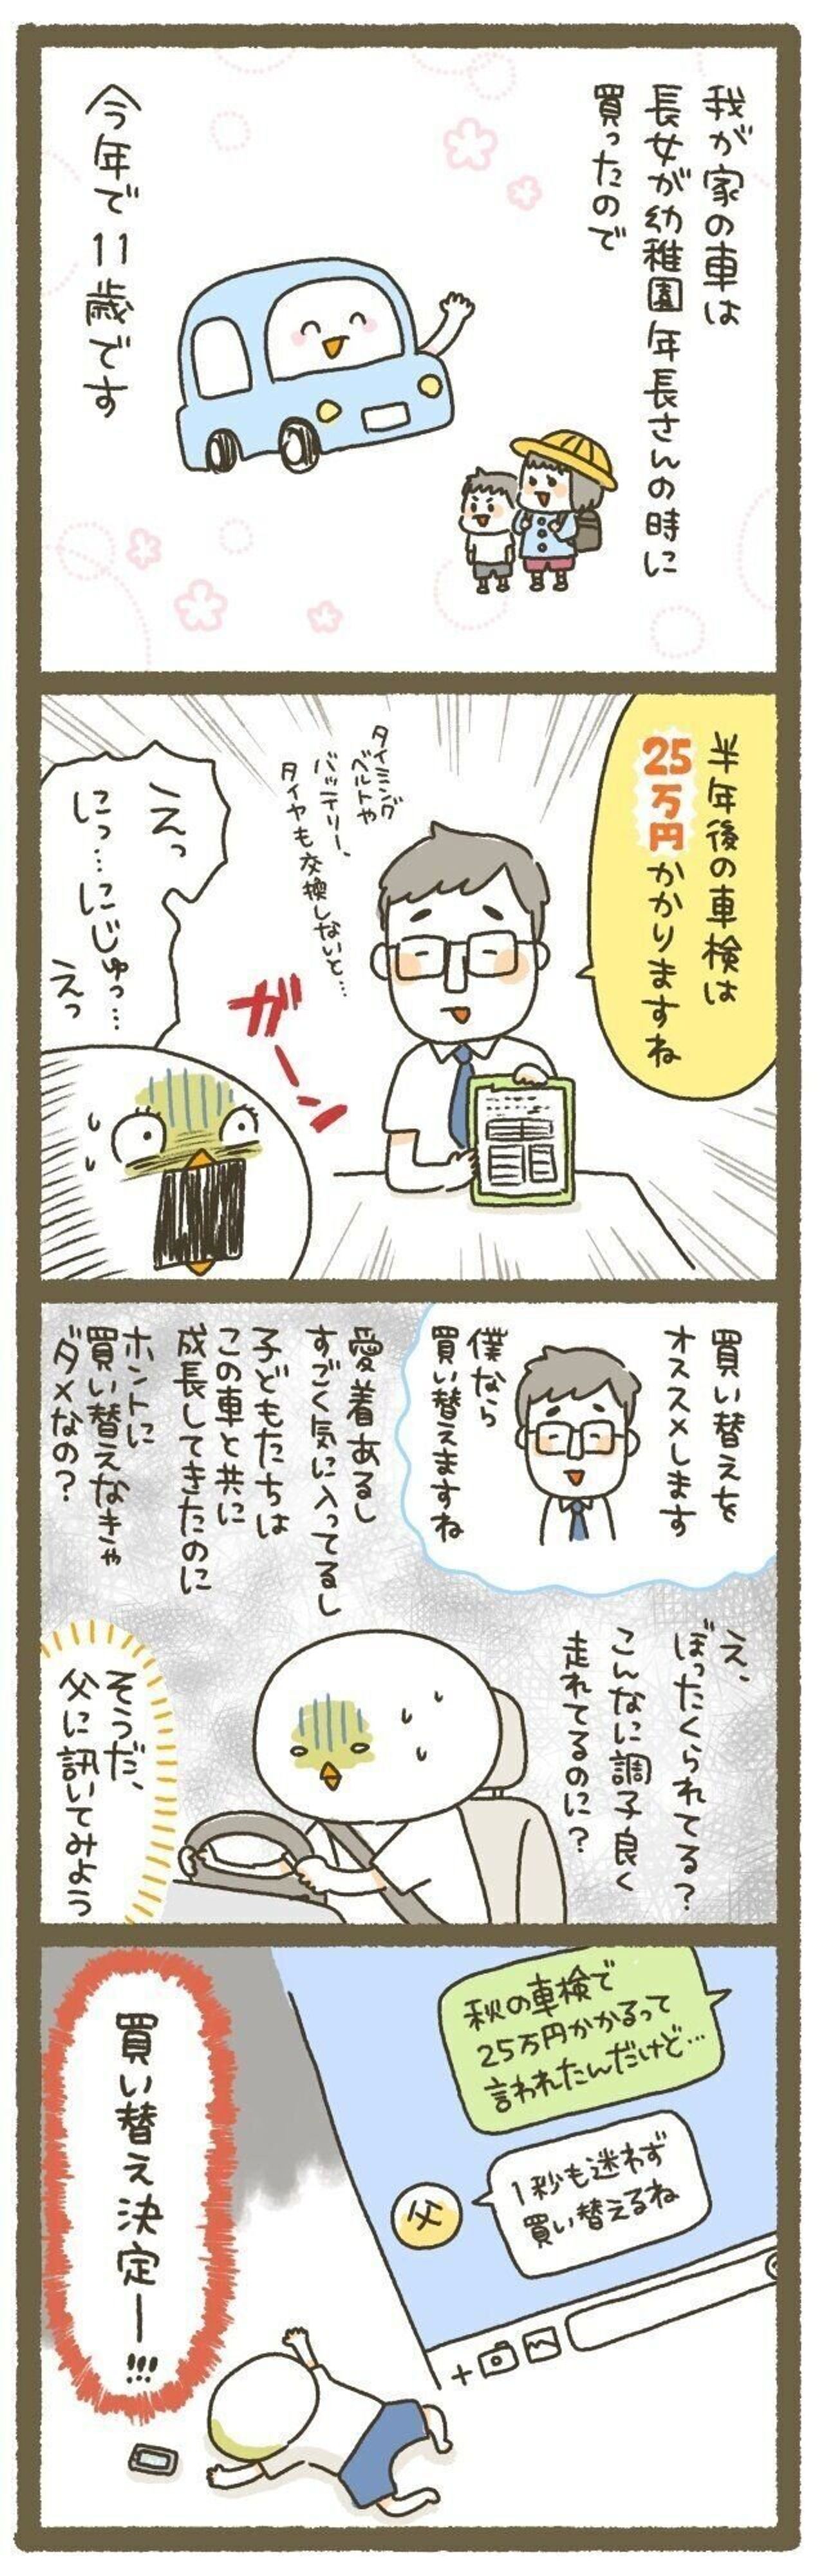 我が家の車は
長女が幼稚園年長さんの時に
買ったので
今年で11歳です
半年後の車検は
25万円かかりますね
タイミング
ベルトや
バッテリー、
タイヤも交換しないと…
ガーン
えっ
にっ…にじゅっ…
えっ
買い替えを
オススメします
僕なら
買い替えますね
え、
ぼったくられてる？
こんなに調子良く
走れてるのに？
愛着あるし
すごく気に入ってるし
子どもたちは
この車と共に
成長してきたのに
ホントに
買い替えなきゃ
ダメなの？
そうだ、
父に訊いてみよう
秋の車検で
25万円かかるって
言われたんだけど…
父
1秒も迷わず
買い替えるね
買い替え決定ー!!!